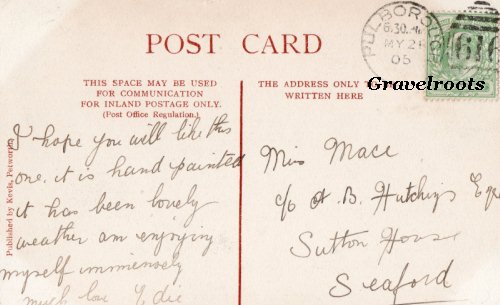 POST CARD
THIS SPACE MAY BE USED
FOR COMMUNICATION
FOR INLAND POSTAGE ONLY.
(Post Office Regulation.)
I hope you will like this
one. it is hand painted
it has been lovely
weather am enjoying
myself immensely
much love Edie
Published by Kevis, Petworth
THE ADDRESS ONLY TO
WRITTEN HERE
Miss Mace
c/o A. B. Hutchings Esqre
Sutton House
Seaford
PULBOROUGH
6.30
MY 21
05
Gravelroots